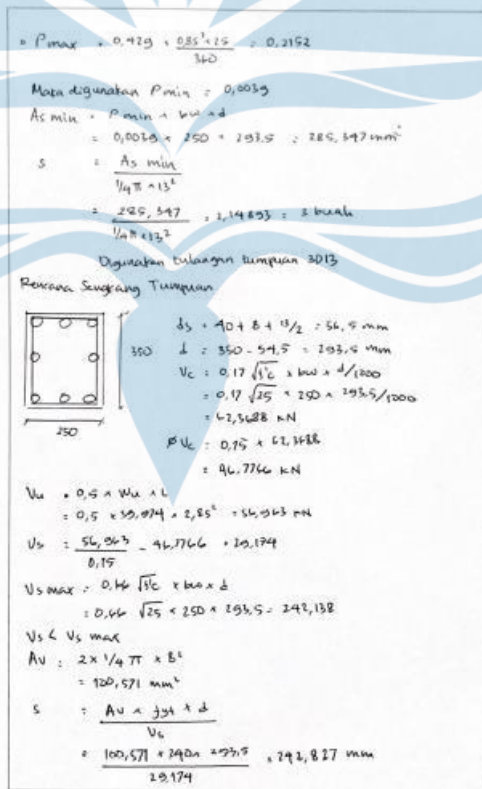 • ρmax = 0,429 × (0,85² × 25) / 360 = 0,2152
Maka digunakan ρmin = 0,0039
As min = ρmin × bw × d
= 0,0039 × 250 × 293.5 = 285,347 mm²
s = As min / (1/4 π × 13²)
= 285,347 / (1/4 π × 13²) = 2,14893 = 3 buah
Digunakan tulangan tumpuan 3D13
Rencana Sengkang Tumpuan
350
250
ds = 40 + 8 + 13/2 = 56,5 mm
d = 350 - 54,5 = 293,5 mm
Vc = 0,17 √f'c × bw × d/1000
= 0,17 √25 × 250 × 293.5/1000
= 62,3688 kN
ØVc = 0,75 × 62,3688
= 46,7766 kN
Vu = 0,5 × Wu × L
= 0,5 × 39,974 × 2,85² = 56,963 kN
Vs = 56,963 / 0,75 - 46,7766 = 29,174
Vs max = 0,66 √f'c × bw × d
= 0,66 √25 × 250 × 293,5 = 242,138
Vs < Vs max
Av = 2 × 1/4 π × 8²
= 100,571 mm²
s = (Av × fyt × d) / Vs
= (100,571 × 240 × 293,5) / 29,174 = 242,827 mm